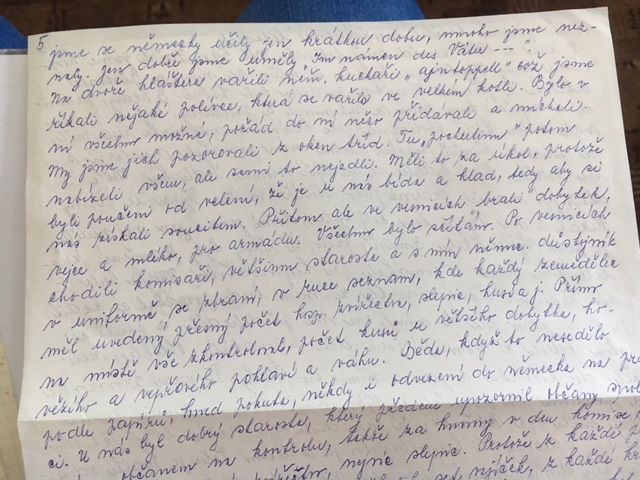 5
jsme se německy učily jen krátkou dobu, mnoho jsme nez-
naly. Jen dobře jsme uměly „Im námen des Vátu --- "!
Na dvoře kláštera vařili něm. kuchaři „ajntoppell" což jsme
říkali nějaké polévce, která se vařila ve velkém kotli. Bylo v
ní všechno možné, pořád do ní něco přidávali a míchali.
My jsme jich pozorovali z oken tříd. Tu „pochutinu" potom
nabízeli všem, ale sami to nejedli. Měli to za úkol, protože
byli poučeni od velení, že je u nás bída a hlad, tedy aby si
nás získali soucitem. Přitom ale ve vesnicích brali dobytek,
vejce a mléko, pro armádu. Všechno bylo sčítáno. Po vesnicích
chodili komisaři, většinou starosta a s ním němec. důstojník
v uniformě se zbraní, v ruce seznam, kde každý zemědělec
měl uvedený přesný počet hosp. zvířectva, slepic, husí a j. Přímo
na místě vše zkontroloval, počet kusů u většího dobytka, ho-
vězího a vepřového pohlaví a váhu. Běda, když to nesedělo
podle zápisů, hned pokuta, někdy i odvezení do německa na prá
ci. U nás byl dobrý starosta, který předem upozornil občany
občanem na kontrolu, takže za humny v den komise
nejvíc slepic. Protože z každé
vajíček, z každé